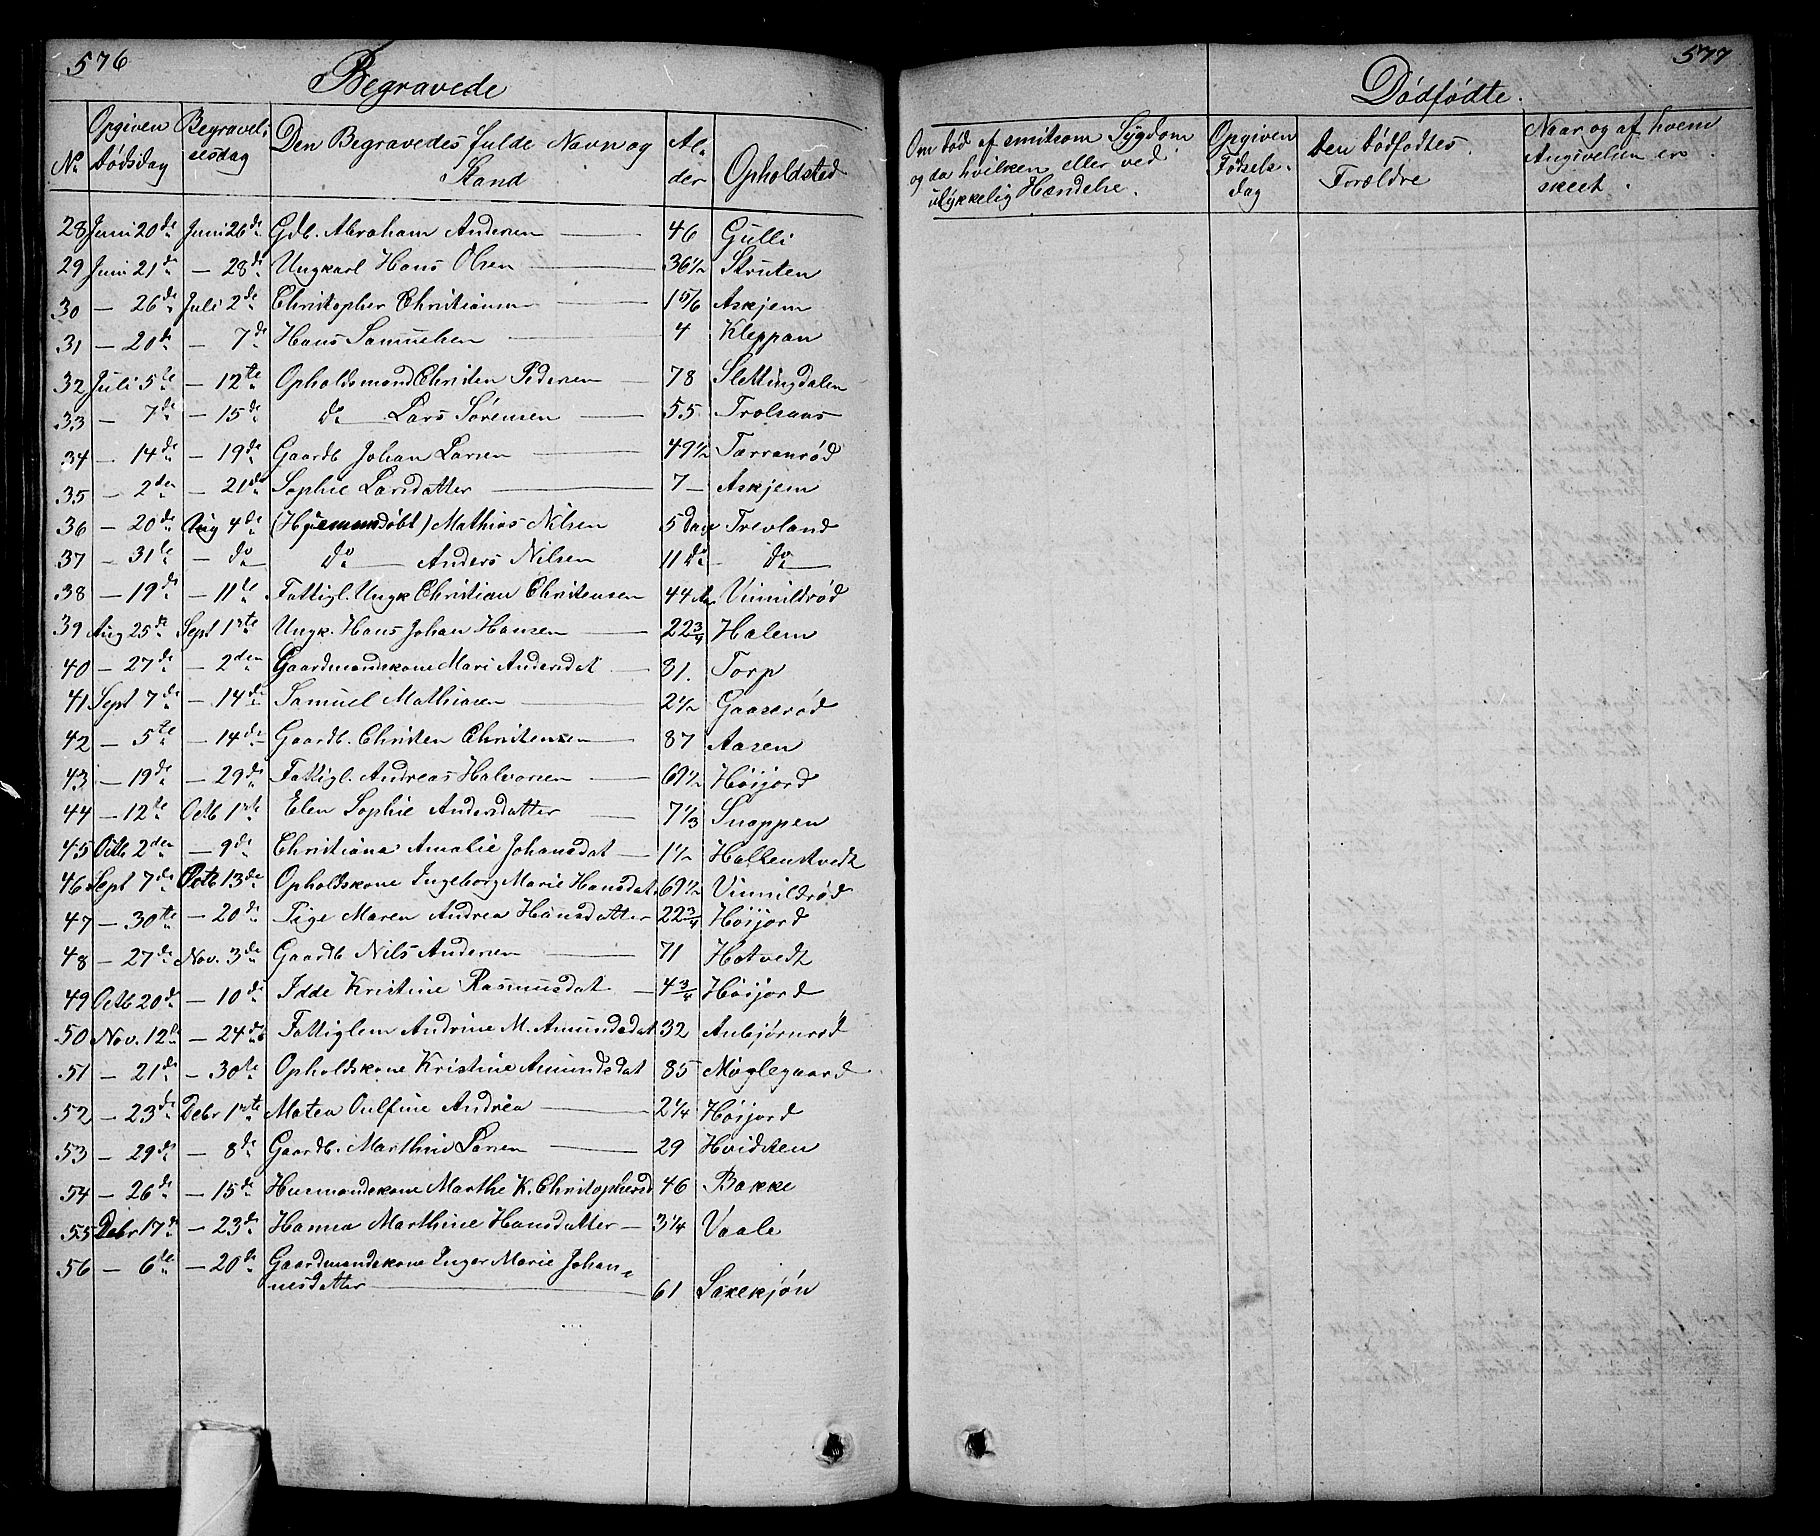 576
Begravede
No | Opgiven Dødsdag | Begravelsesdag | Den Begravedes fulde Navn og Stand | Alder | Opholdsted
28 Juni 20de Juni 26de Gdb. Abraham Andersen 46 Gulli
29 Juni 21de — 28de Ungkarl Hans Olsen 36 1/2 Struten
30 — 26de Juli 2de Christopher Christiansen 1 5/6 Askjem
31 — 20de — 7de Hans Samuelsen 4 Kleppan
32 Juli 5te — 12te Opholdsmand Christen Pedersen 78 Slettingdalen
33 — 7de — 15de do — Lars Sørensen 55 Trolsaas
34 — 14de — 19de Gaardb Johan Larsen 49 1/2 Tærranrød
35 — 2den — 21de Sophie Larsdatter 7 — Askjem
36 — 20de Aug 4de (Hjemmedøbt) Mathias Nilsen 5 Dage Trevland
37 — 31te — do do — Anders Nilsen 11 do do
38 — 19de — 11te Fattigl. Ungk Christian Christensen 44 Aar Vinmildrød
39 Aug 25de Sept 1ste Ungk. Hans Johan Hansen 22 3/4 Halem
40 — 27de — 2den Gaardmandskone Mari Andersdat 31. Torp
41 Sept 7de — 14de Samuel Mathiasen 2 1/2 Gaaserød
42 — 5te — 14de Gaardb. Christen Christensen 87 Aasen
43 — 19de — 29de Fattigl. Andreas Halvorsen 69 1/2 Høijord
44 — 12te Octb 1ste Elen Sophie Andersdatter 7 1/3 Snappen
45 Octb 2den — 9de Christiane Amalie Johansdat 1 1/2 Hallenstvedt
46 Sept 7de Octb 13de Opholdskone Ingeborg Marie Hansdat 69 1/2 Vinmildrød
47 — 30te — 20de Pige Maren Andrea Hansdatter 22 3/4 Høijord
48 — 27de Nov. 3de Gaardb Nils Andersen 71 Hotvedt
49 Octb 20de — 10de Idde Kristine Rasmusdat 4 3/4 Høijord
50 Nov. 12te — 24de Fattiglem Andrine M. Amundsdat 32 Anbjørnrød
51 — 21de — 30te Opholdskone Kristine Amundsdat 85 Møglegaard
52 — 23de Debr 1ste Matea Oulfine Andrea 2 1/4 Høijord
53 — 29de — 8de Gaardb. Marthin Larsen 29 Hvidsten
54 — 26de — 15de Husmandskone Marthe K. Christophersd 46 Bakke
55 Debr 17de — 23de Hanna Marthine Hansdatter — 3 1/4 Vaale
56 — 6te — 20de Gaardmandskone Inger Marie Johannesdatter 61 Saxekjøn
577
Dødfødte.
Om død af smitsom Sygdom og da hvilken eller ved ulykkelig Hændelse. | Opgiven Fødselsdag | Den Dødfødtes Forældre | Naar og af hvem Angivelsen er skeet.